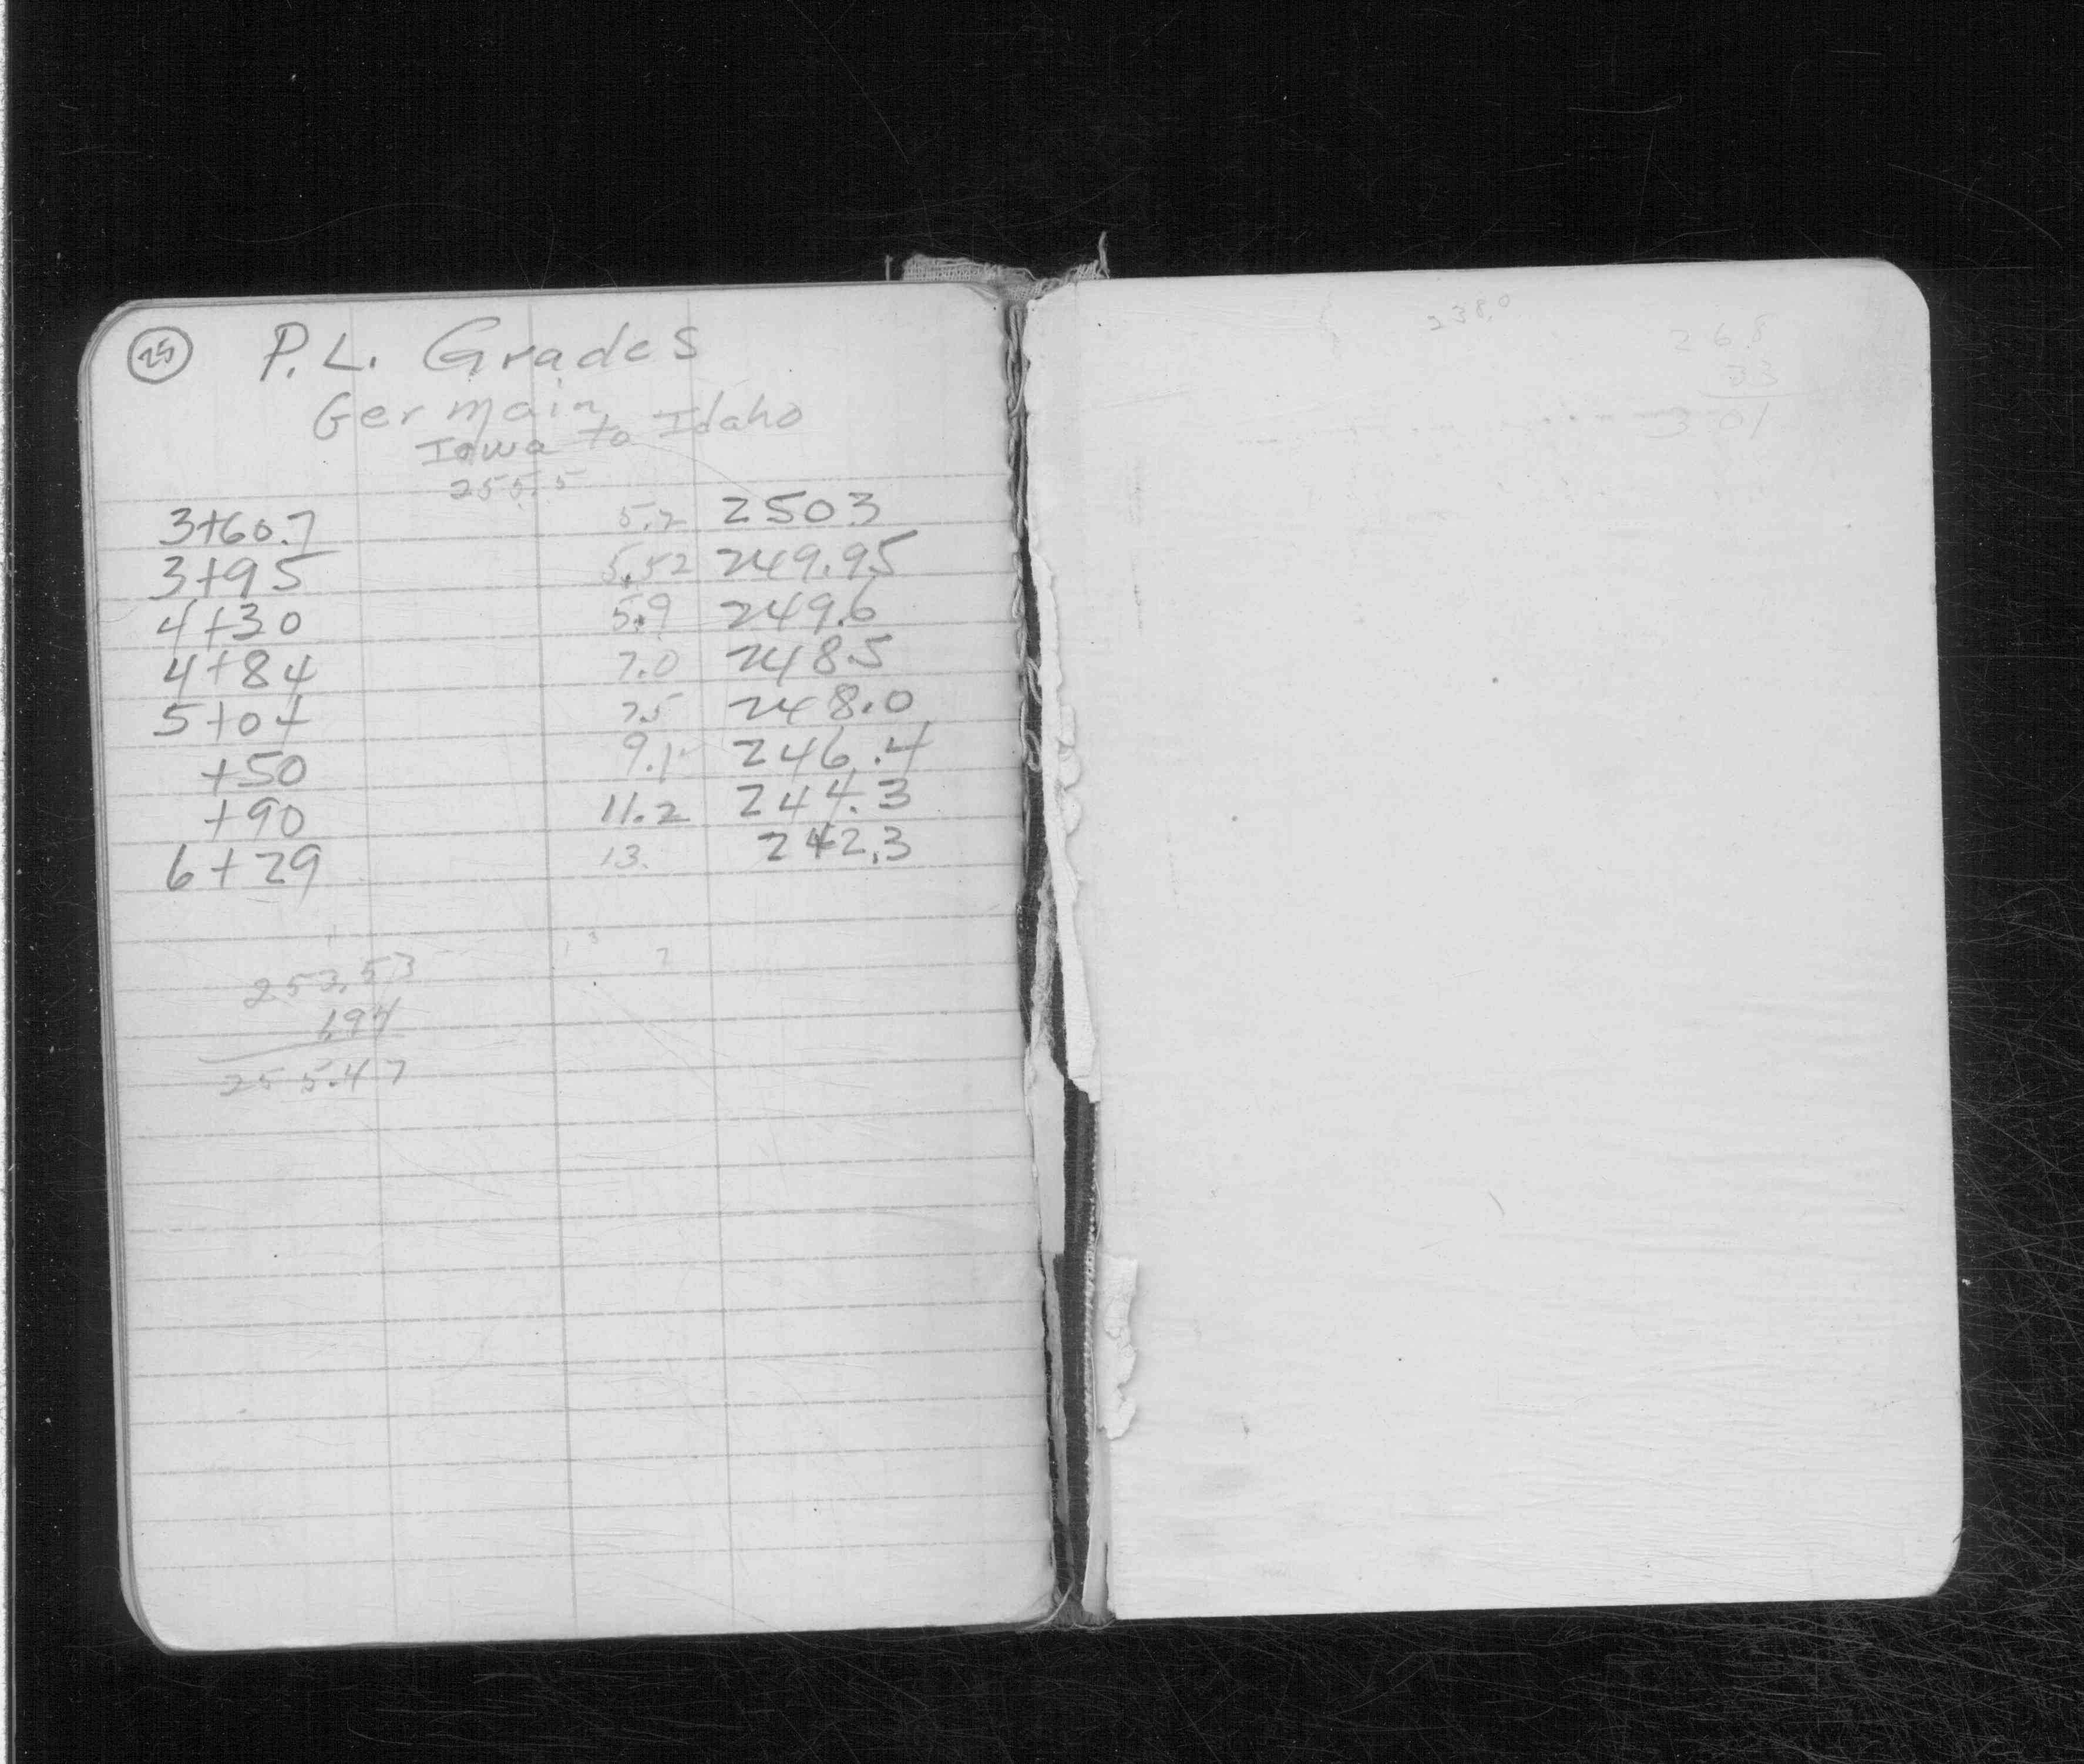 25 P.L. Grades
Germain
Iowa to Idaho
255.5
3+60.7 5.2 250.3
3+95 5.52 249.95
4+30 5.9 249.6
4+84 7.0 248.5
5+04 7.5 248.0
+50 9.1 246.4
+90 11.2 244.3
6+29 13. 242.3
253.53
1.94
255.47
238.0
268
33
301